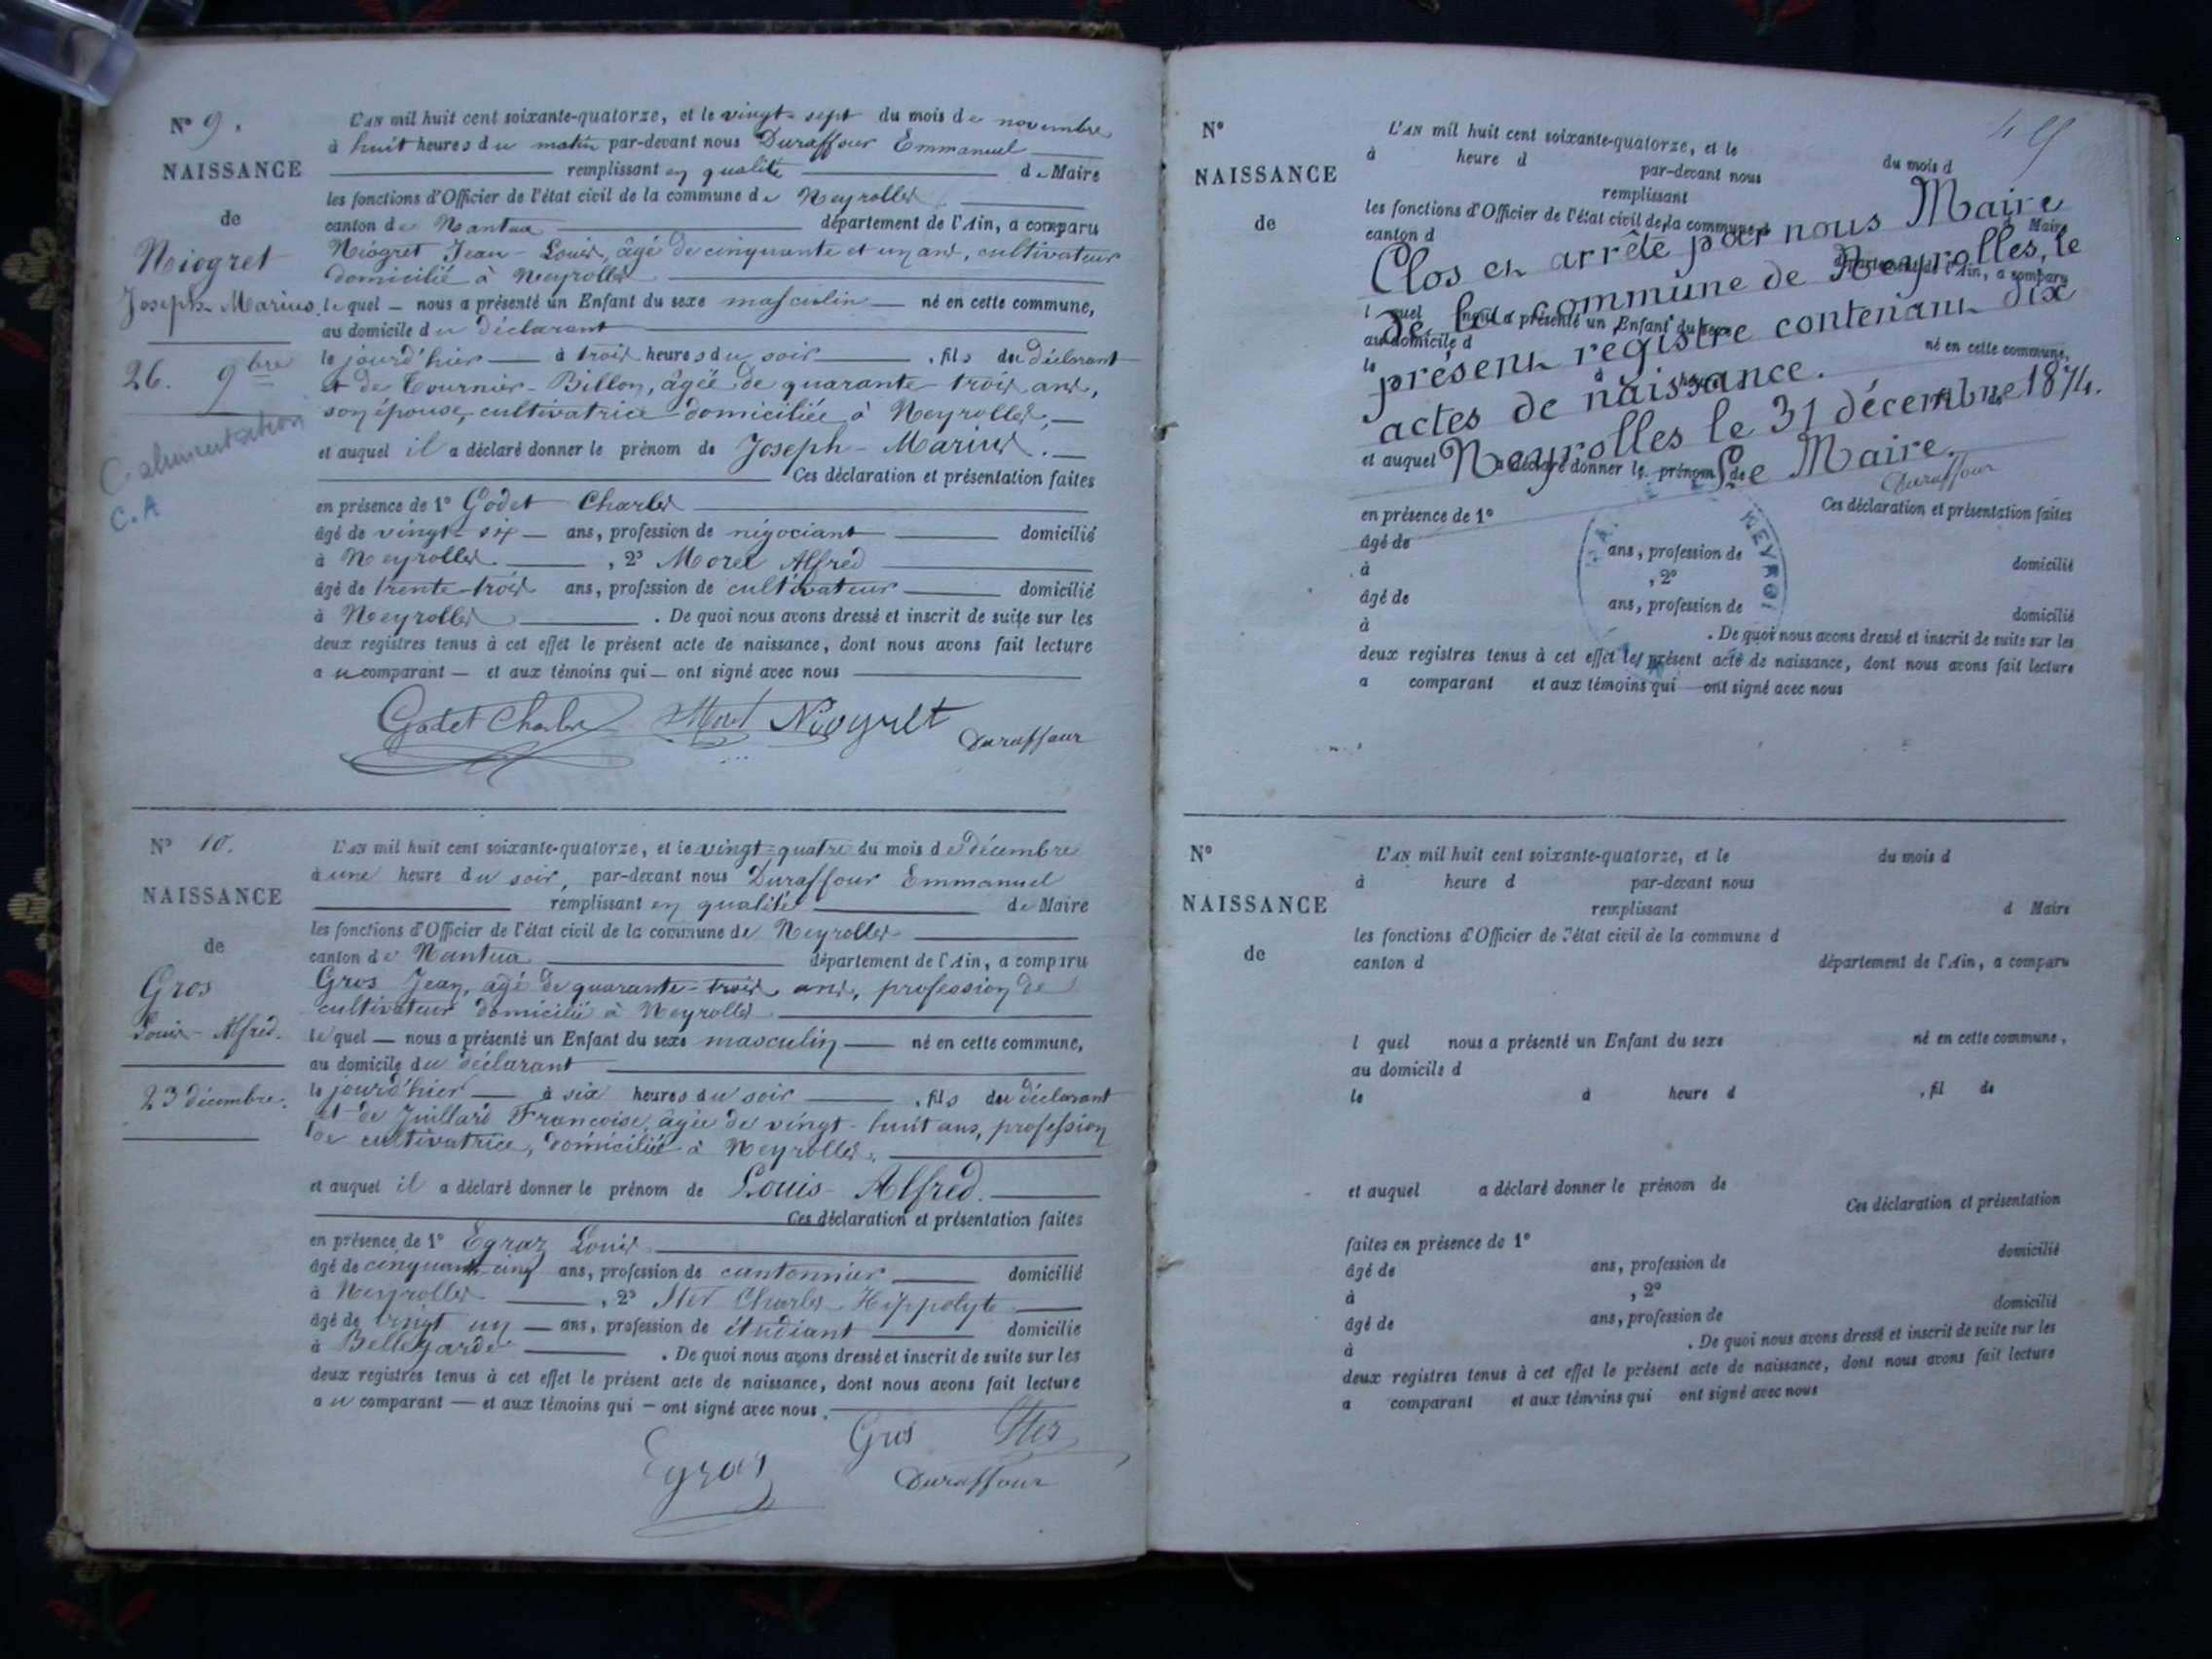 N° 9.
NAISSANCE
de
Niogret
Joseph-Marius
26. 9bre
C alimentation
C.A
L'AN mil huit cent soixante-quatorze, et le vingt-sept du mois de novembre
à huit heures du matin par-devant nous Duraffour Emmanuel
remplissant en qualité de Maire
les fonctions d'Officier de l'état civil de la commune de Neyrolles
canton de Nantua département de l'Ain, a comparu
Niogret Jean-Louis, âgé de cinquante et un ans, cultivateur
domicilié à Neyrolles
lequel nous a présenté un Enfant du sexe masculin né en cette commune,
au domicile du déclarant
le jourd'hier à trois heures du soir, fils du déclarant
et de Tournier-Billon, âgée de quarante-trois ans,
son épouse, cultivatrice domiciliée à Neyrolles,
et auquel il a déclaré donner le prénom de Joseph-Marius.
Ces déclaration et présentation faites
en présence de 1° Godet Charles
âgé de vingt-six ans, profession de négociant domicilié
à Neyrolles, 2° Morel Alfred
âgé de trente-trois ans, profession de cultivateur domicilié
à Neyrolles. De quoi nous avons dressé et inscrit de suite sur les
deux registres tenus à cet effet le présent acte de naissance, dont nous avons fait lecture
au comparant et aux témoins qui ont signé avec nous
Godet Charles Niogret
Duraffour
N° 10.
NAISSANCE
de
Gros
Louis-Alfred.
23 décembre.
L'AN mil huit cent soixante-quatorze, et le vingt-quatre du mois de décembre
à une heure du soir, par-devant nous Duraffour Emmanuel
remplissant en qualité de Maire
les fonctions d'Officier de l'état civil de la commune de Neyrolles
canton de Nantua département de l'Ain, a comparu
Gros Jean, âgé de quarante-trois ans, profession de
cultivateur domicilié à Neyrolles
lequel nous a présenté un Enfant du sexe masculin né en cette commune,
au domicile du déclarant
le jourd'hier à six heures du soir, fils du déclarant
et de Juillard Françoise, âgée de vingt-huit ans, profession
de cultivatrice, domiciliée à Neyrolles,
et auquel il a déclaré donner le prénom de Louis-Alfred.
Ces déclaration et présentation faites
en présence de 1° Egraz Louis
âgé de cinquante-cinq ans, profession de cantonnier domicilié
à Neyrolles, 2° Charles Hippolyte
âgé de vingt un ans, profession de étudiant domicilié
à Bellegarde. De quoi nous avons dressé et inscrit de suite sur les
deux registres tenus à cet effet le présent acte de naissance, dont nous avons fait lecture
au comparant et aux témoins qui ont signé avec nous.
Gros
Egraz Duraffour
N°
NAISSANCE
de
L'AN mil huit cent soixante-quatorze, et le du mois d
à heure d par-devant nous
remplissant d Maire
les fonctions d'Officier de l'état civil de la commune d
canton d département de l'Ain, a comparu
Clos en arrêté par nous Maire
de la commune de Neyrolles, le
présent registre contenant dix
actes de naissance.
Neyrolles le 31 décembre 1874.
Le Maire.
Duraffour
l quel nous a présenté un Enfant du sexe né en cette commune,
au domicile d
le à heure d
et auquel a déclaré donner le prénom de
Ces déclaration et présentation faites
en présence de 1°
âgé de ans, profession de domicilié
à , 2°
âgé de ans, profession de domicilié
à . De quoi nous avons dressé et inscrit de suite sur les
deux registres tenus à cet effet le présent acte de naissance, dont nous avons fait lecture
a comparant et aux témoins qui ont signé avec nous
N°
NAISSANCE
de
L'AN mil huit cent soixante-quatorze, et le du mois d
à heure d par-devant nous
remplissant d Maire
les fonctions d'Officier de l'état civil de la commune d
canton d département de l'Ain, a comparu
l quel nous a présenté un Enfant du sexe né en cette commune,
au domicile d
le à heure d , fil de
et auquel a déclaré donner le prénom de
Ces déclaration et présentation
faites en présence de 1°
âgé de ans, profession de domicilié
à , 2°
âgé de ans, profession de domicilié
à . De quoi nous avons dressé et inscrit de suite sur les
deux registres tenus à cet effet le présent acte de naissance, dont nous avons fait lecture
a comparant et aux témoins qui ont signé avec nous